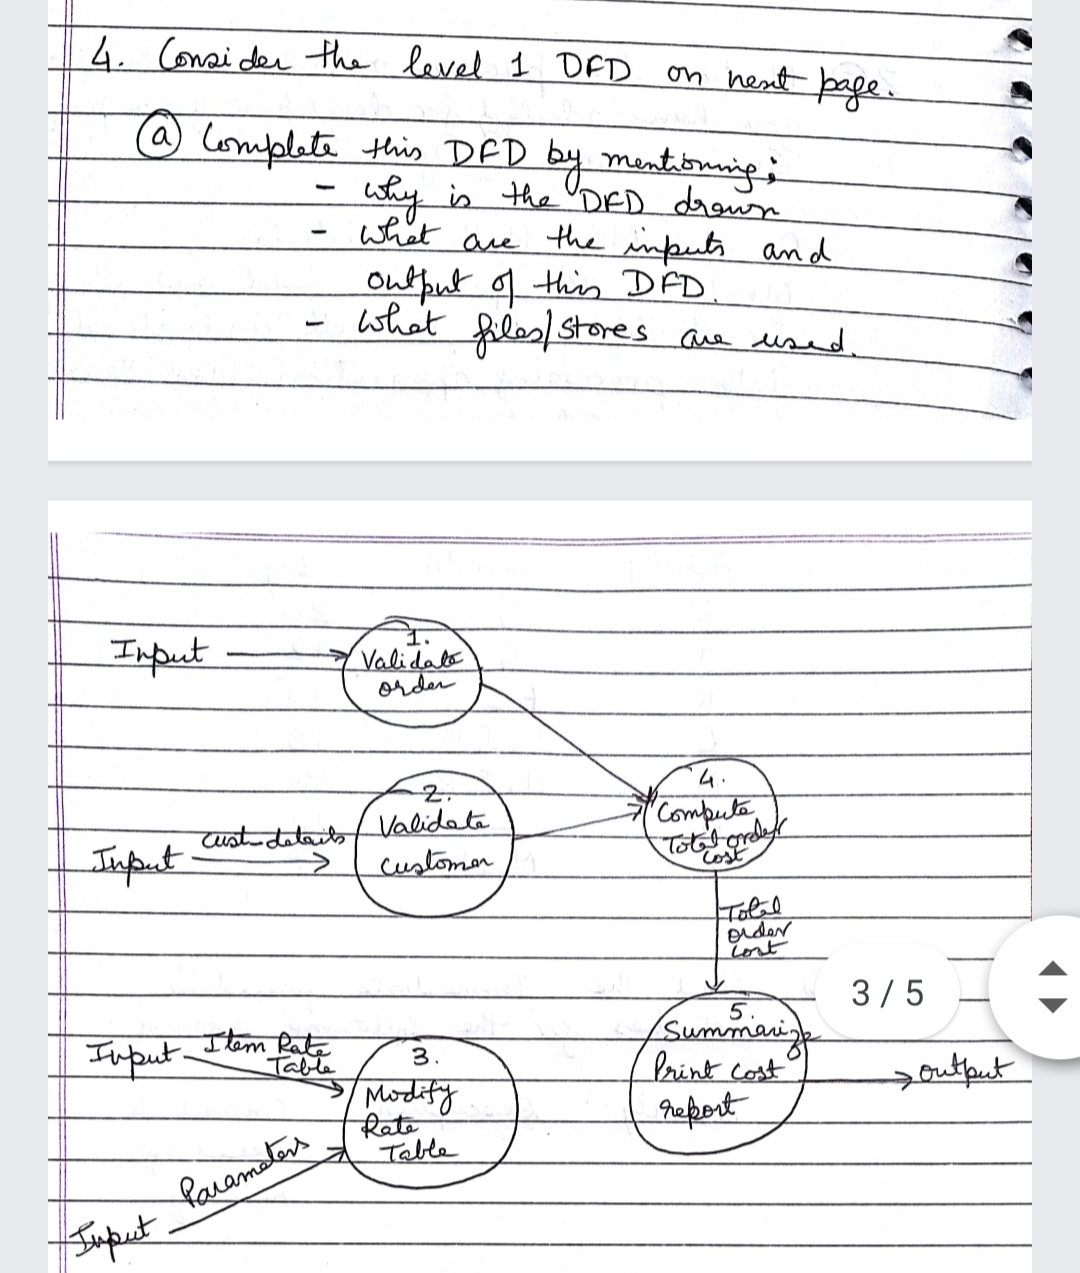 4. Consider the level 1 DFD on next page.
(a) Complete this DFD by mentioning;
- why is the DFD drawn
- what are the inputs and
output of this DFD.
- what files/stores are used.
Input
1.
Validate
order
Input
cust-details
2.
Validate
customer
4.
Compute
Total order
cost
Total
order
cost
3 / 5
Input
Item Rate
Table
3.
Modify
Rate
Table
Input
Parameters
5.
Summarize
Print cost
report
output